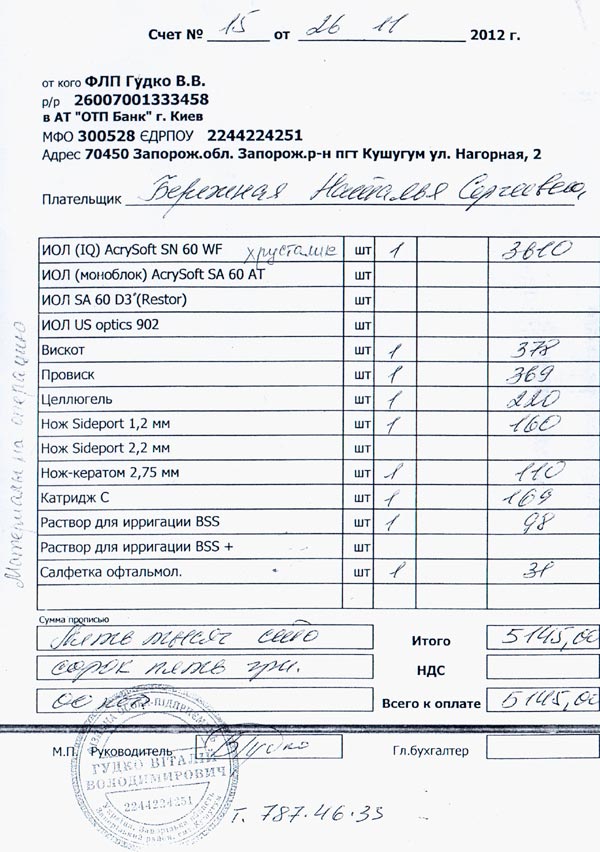 Счет № 15 от 26 11 2012 г.
от кого ФЛП Гудко В.В.
р/р 26007001333458
в АТ "ОТП Банк" г. Киев
МФО 300528 ЄДРПОУ 2244224251
Адрес 70450 Запорож.обл. Запорож.р-н пгт Кушугум ул. Нагорная, 2
Плательщик Бережная Наталья Сергеевна,
ИОЛ (IQ) AcrySoft SN 60 WF хрусталик шт 1 3610
ИОЛ (моноблок) AcrySoft SA 60 AT шт
ИОЛ SA 60 D3 (Restor) шт
ИОЛ US optics 902 шт
Вискот шт 1 378
Провиск шт 1 369
Целлюгель шт 1 220
Нож Sideport 1,2 мм шт 1 160
Нож Sideport 2,2 мм шт
Нож-кератом 2,75 мм шт 1 110
Катридж С шт 1 169
Раствор для ирригации BSS шт 1 98
Раствор для ирригации BSS + шт
Салфетка офтальмол. шт 1 31
Материалы на операцию
Сумма прописью
Пять тысяч сто Итого 5145,00
сорок пять грн. НДС
00 коп Всего к оплате 5145,00
М.П. Руководитель Гл.бухгалтер
ГУДКО ВІТАЛІЙ
ВОЛОДИМИРОВИЧ
2244224251
Т. 787-46-33